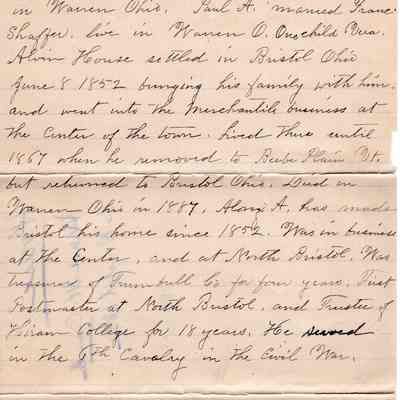 in Warren Ohio. Paul A. married Franc
Shaffer. live in Warren O. One child Vera.
Alvin House settled in Bristol Ohio
June 8 1852 bringing his family with him.
and went into the Merchantile business at
the Center of the town. lived there until
1867 when he removed to Beebe Plain Vt.
but returned to Bristol Ohio. Died in
Warren Ohio in 1887. A. has made
Bristol his home since 1852. Was in business
at the Center, and at North Bristol. Was
treasurer of Trumbull Co for four years. First
Postmaster at North Bristol, and Trustee of
Hiram College for 18 years. He served
in the 6th Cavalry in the Civil War.